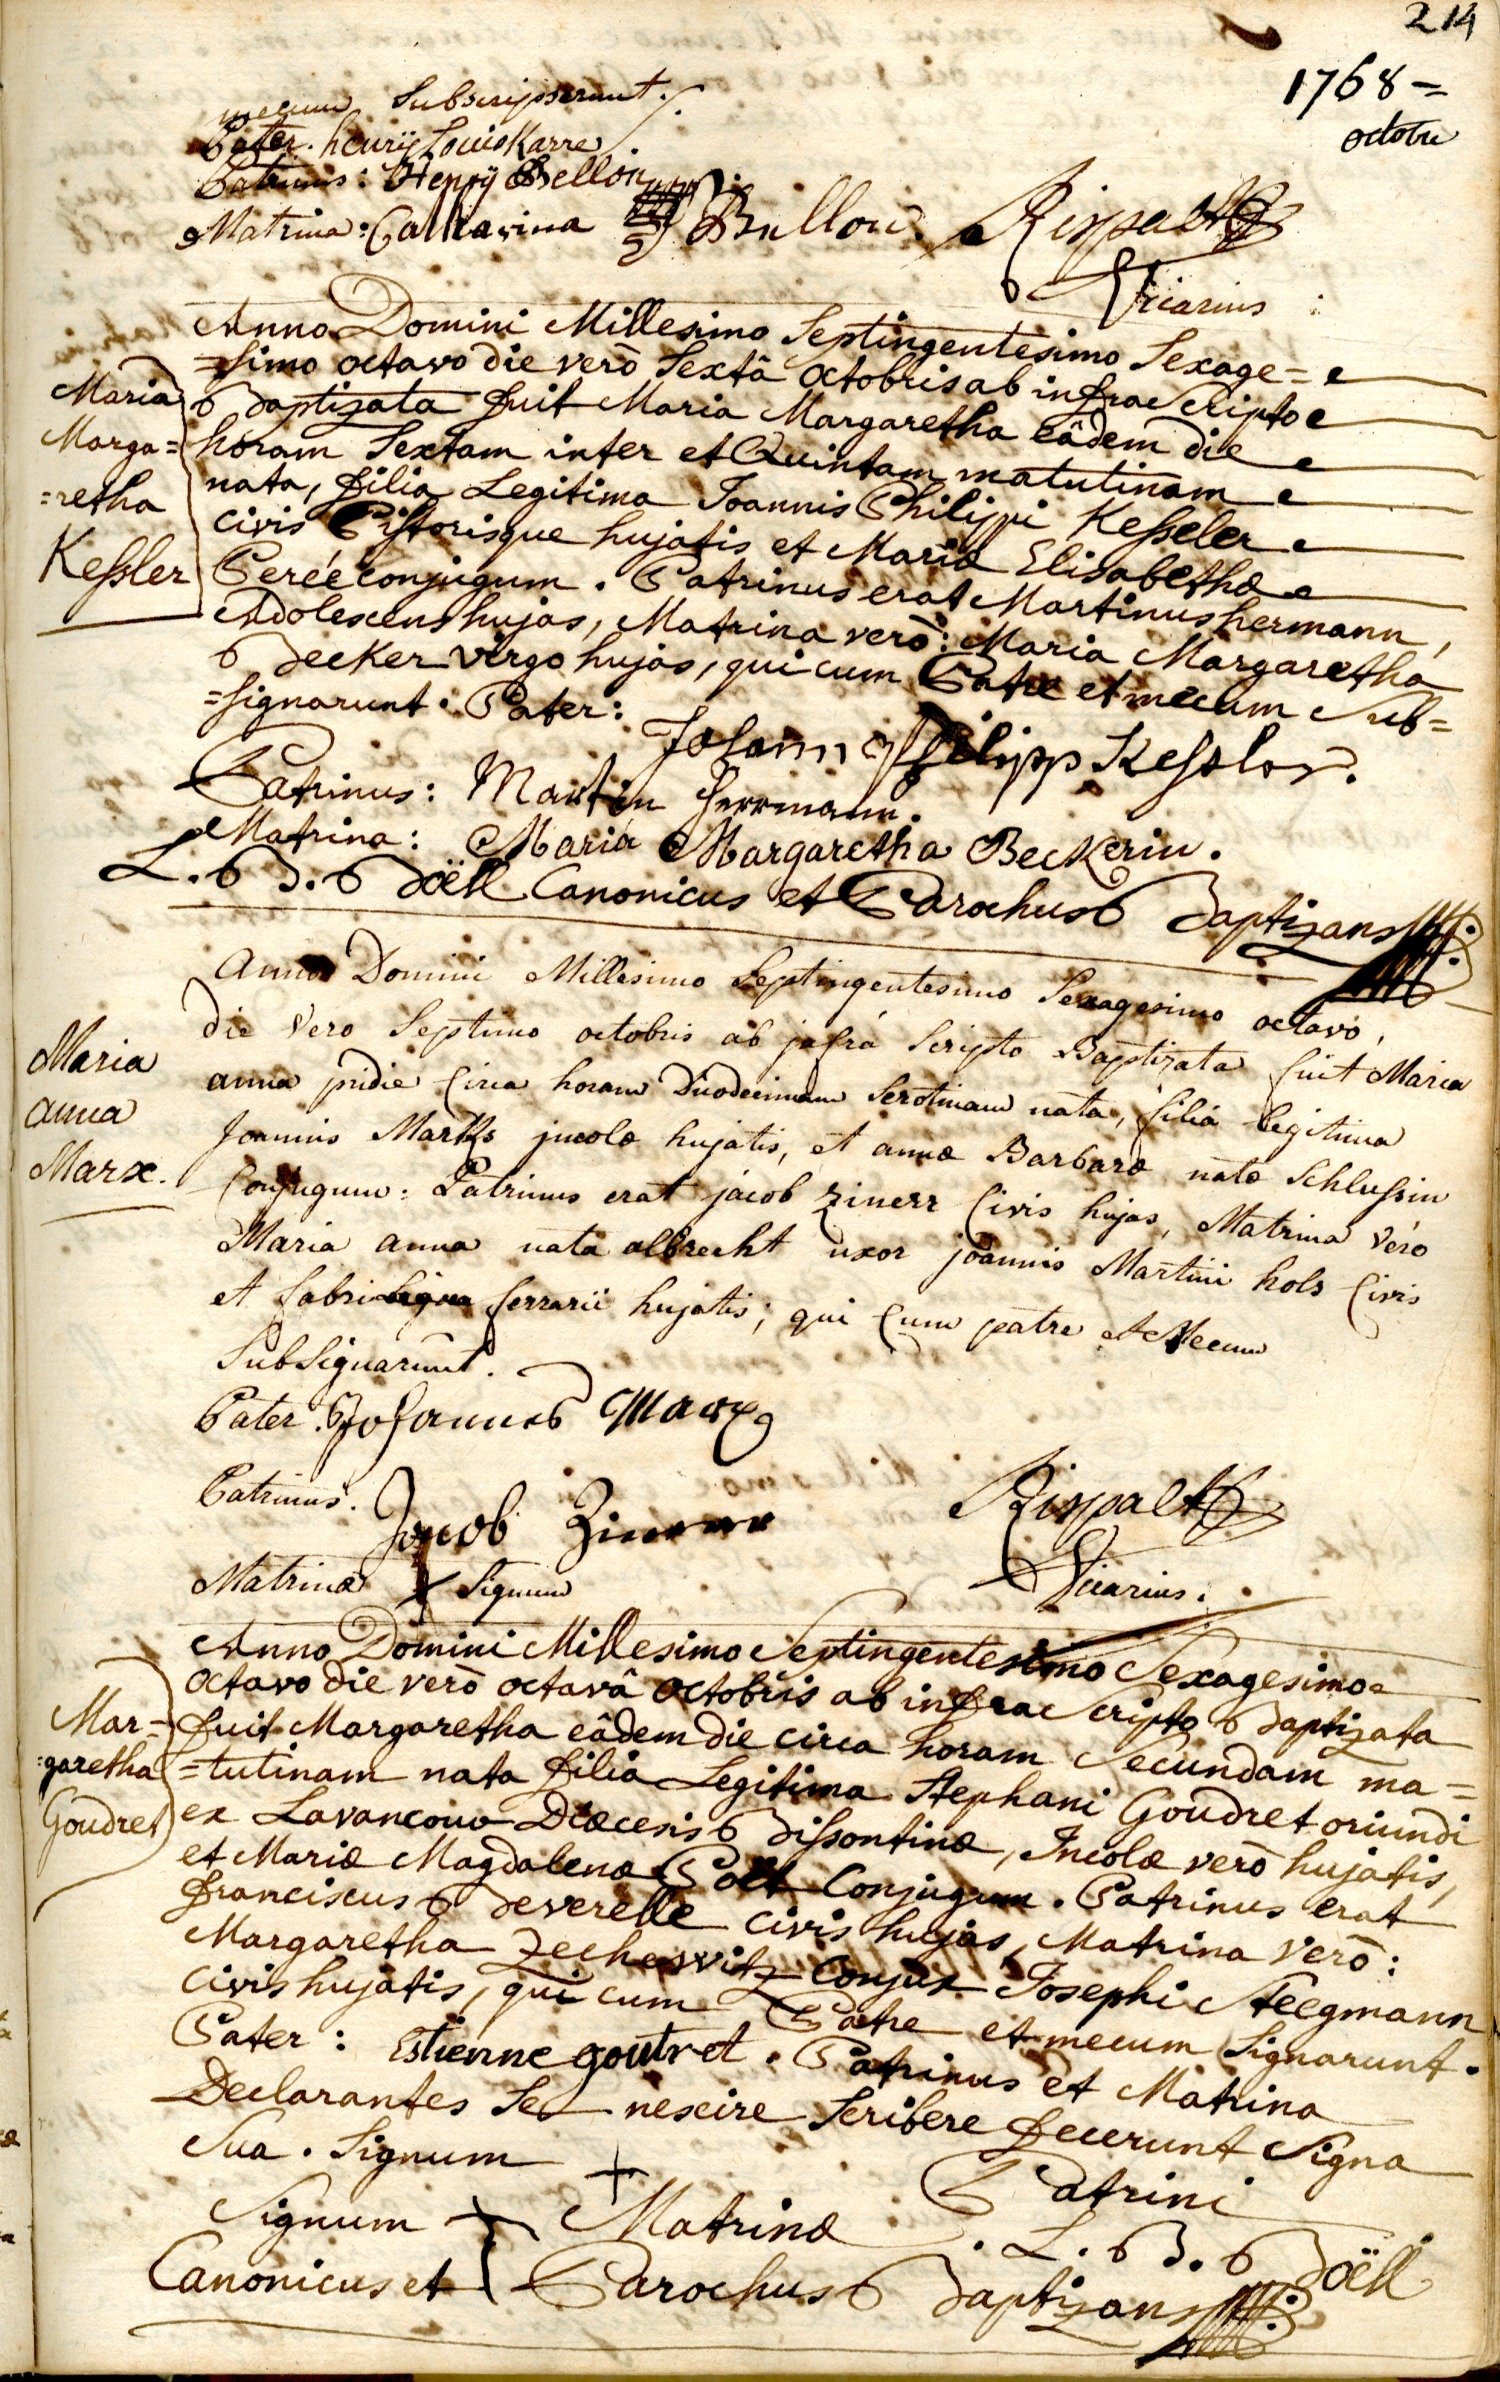 214
1768 =
octobre
mecum Subscripserunt ./.
Pater. henrÿ Louis Karre
Patrinus : Henrÿ Bellon
Matrina : Catharina Bullon. Rispalt
Vicarius
Anno Domini Millesimo Septingentesimo Sexage=
=simo octavo die verò Sextâ octobris ab infra Scripto
Baptizata fuit Maria Margaretha eâdem die
horam Sextam inter et Quintam matutinam
nata, filia Legitima Joannis Philippi Kessler
civis Pistorisque hujatis et Mariæ Elisabethæ
Pereé conjugum. Patrinus erat Martinus hermann,
Adolescens hujas, Matrina verò: Maria Margaretha
Becker virgo hujas, qui cum Patre et mecum Sub=
=signarunt. Pater: Johann Philipp Kessler.
Patrinus: Martin Herrmann.
Matrina: Maria Margaretha Beckerin.
L. B. Boëll Canonicus et Parochus Baptizans
Maria
Marga=
=retha
Kessler
Anno Domini Millesimo Septingentesimo Sexagesimo octavo,
die Vero Septimo octobris ab jnfrá Scripto Baptizata fuit Maria
anna pridie Circa horam Duodecimam Serotinam nata, filia legitima
Joannis Marks jncolæ hujatis, et annæ Barbaræ natæ Schlussin
Conjugum : Patrinus erat jacob zinerr Civis hujas, Matrina Véro
Maria anna nata albrecht uxor joannis Martini hols Civis
et fabri ferrarii hujatis; qui Cum patre et Mecum
Subsignarunt.
Pater. Johannes Marx
Patrinus. Jacob Zinerr Rispalt
Matrinæ + Signum Vicarius.
Maria
anna
Marx.
Anno Domini Millesimo Septingentesimo Sexagesimo
octavo die verò octavâ octobris ab infra Scripto Baptizata
fuit Margaretha eâdem die circa horam Secundam ma=
=tutinam nata filia Legitima Stephani Goudret oriundi
ex Lavancour Diœcesis Bissontinæ, Incolæ verò hujatis,
et Mariæ Magdalenæ Poët Conjugum. Patrinus erat
franciscus Beverelle civis hujas, Matrina verò:
Margaretha Zecherwitz Conjux Josephi Steegmann
civis hujatis, qui cum Patre et mecum Signarunt.
Pater : Estienne goutret. Patrinus et Matrina
Declarantes Se nescire Scribere fecerunt Signa
Sua. Signum + Patrini
Signum + Matrinæ. L. B. Boëll
Canonicus et Parochus Baptizans
Mar=
=garetha
Goudret